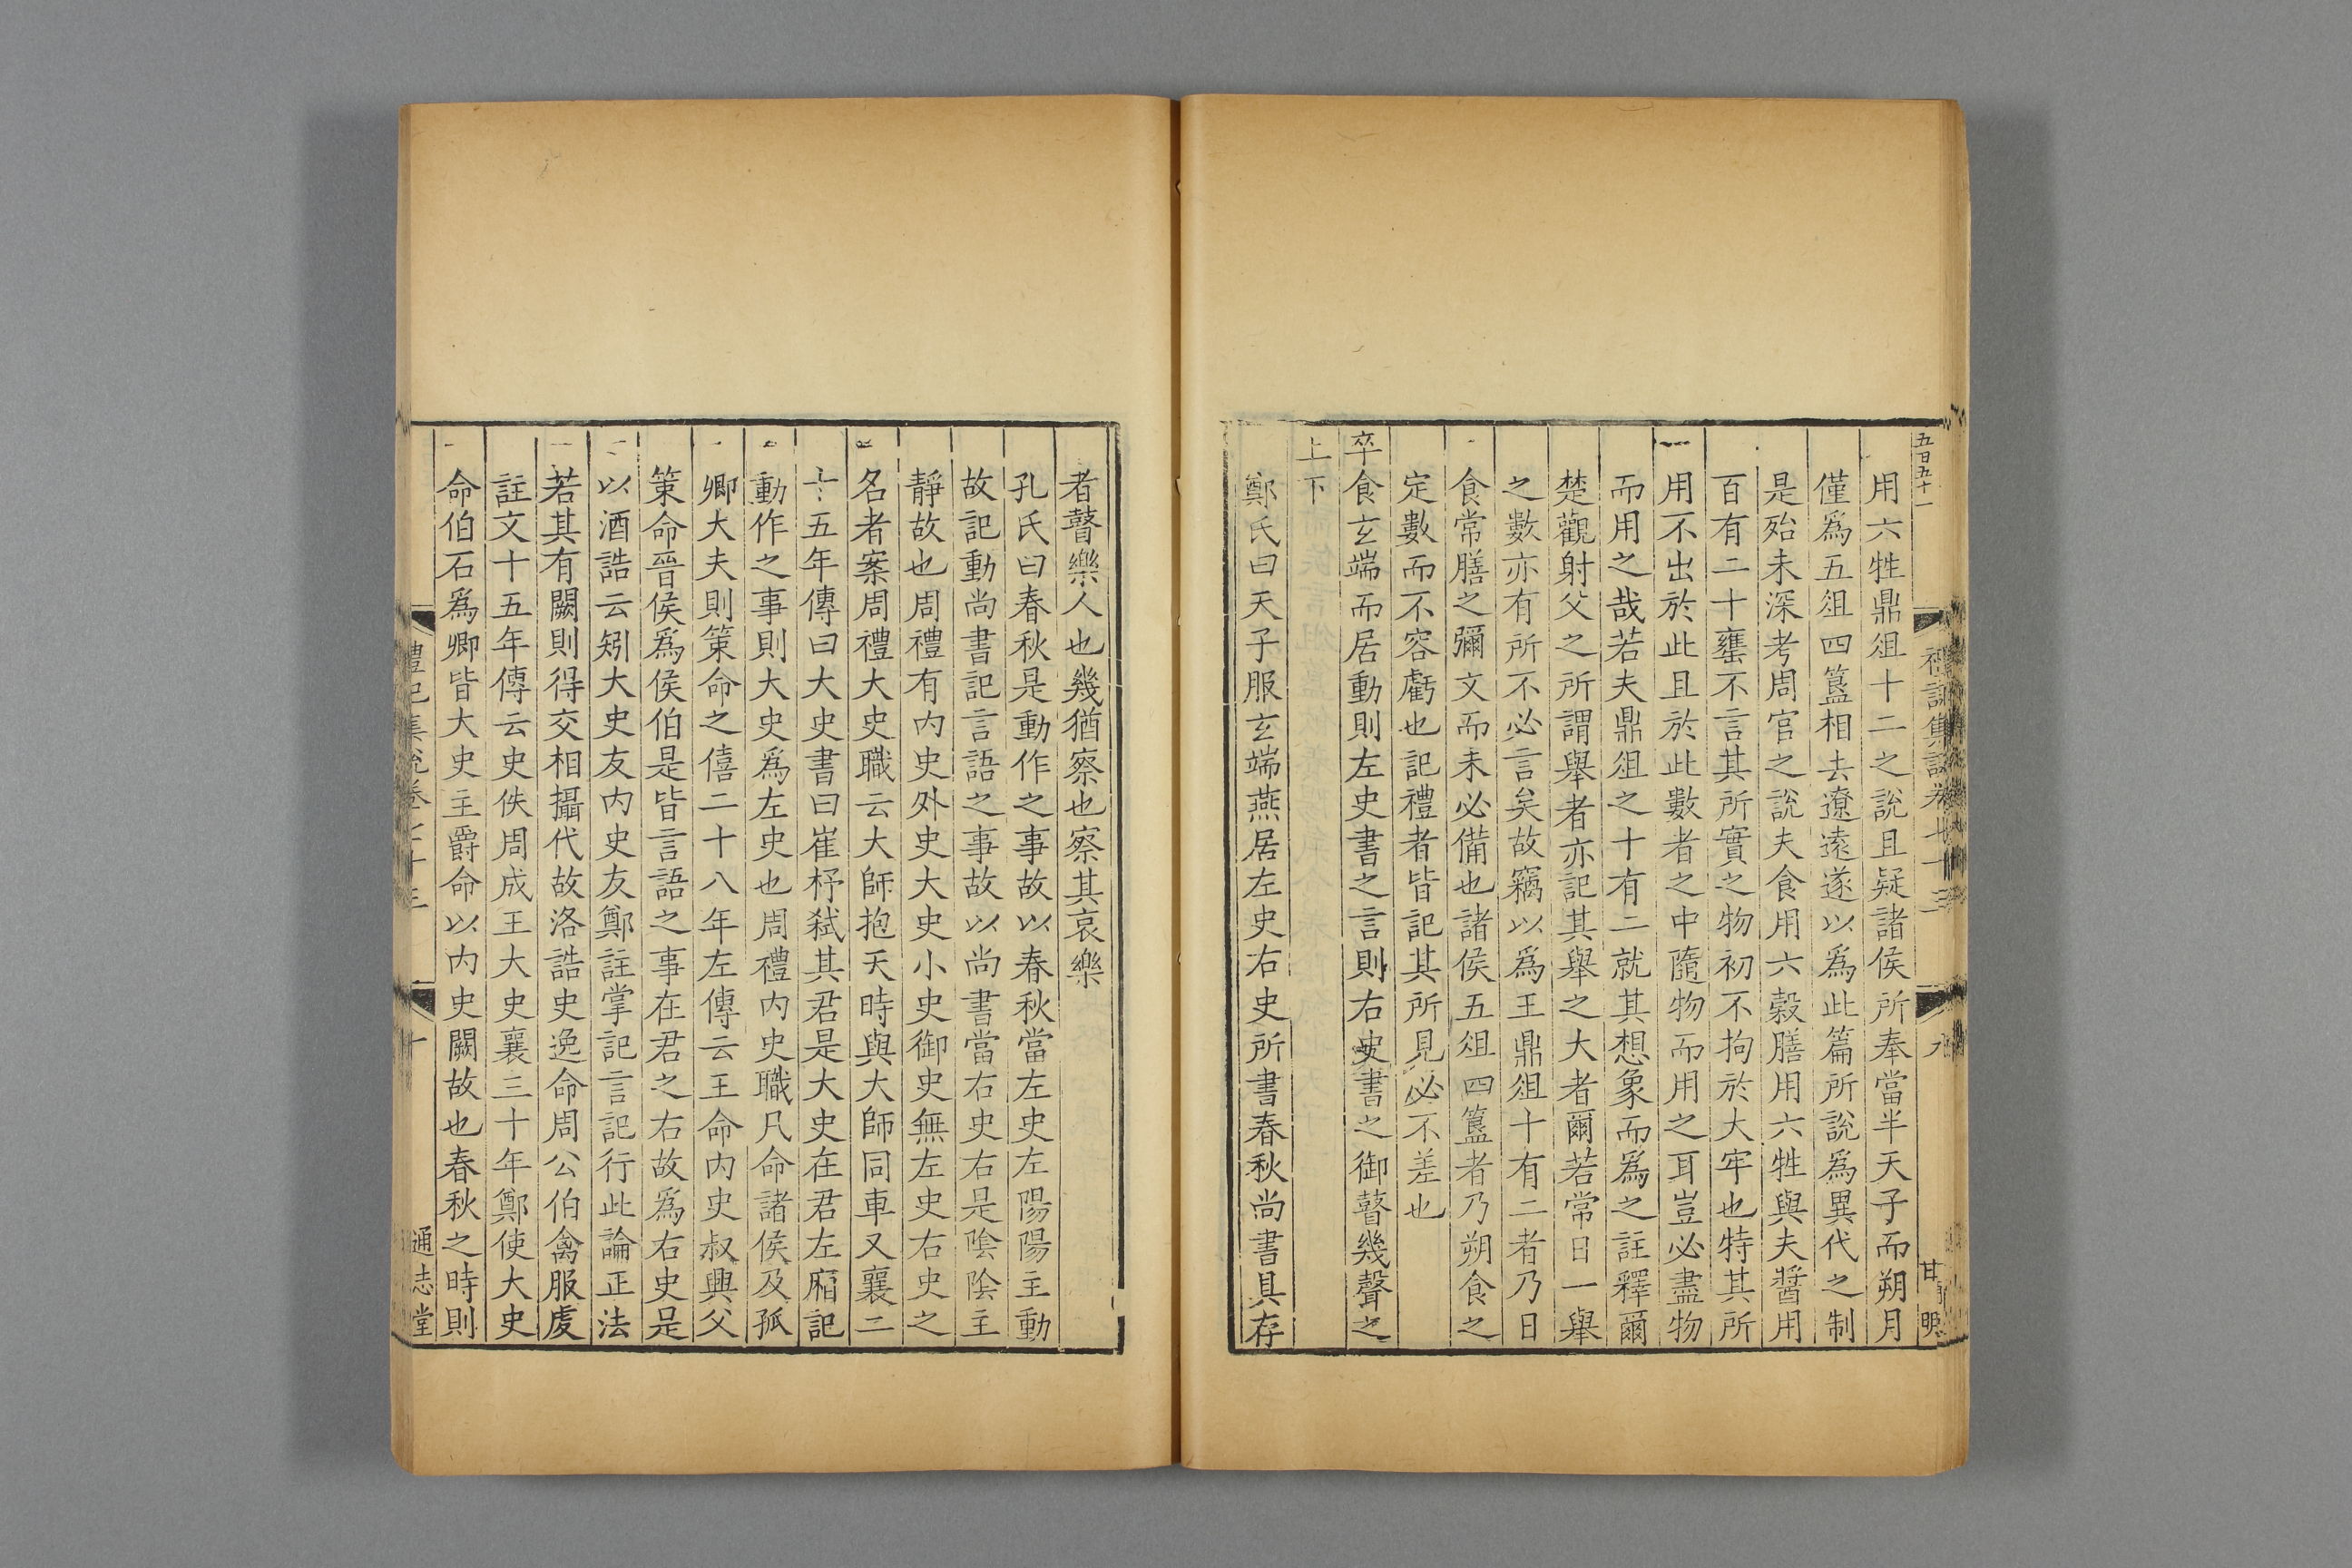 五百五十一
禮記集說卷七十三
九
甘
明
用六牲鼎俎十二之說且疑諸侯所奉當半天子而朔月
僅爲五俎四簋相去遼遠遂以爲此篇所說爲異代之制
是殆未深考周官之說夫食用六穀膳用六牲與夫醬用
百有二十罋不言其所實之物初不拘於大牢也特其所
用不出於此且於此數者之中隨物而用之耳豈必盡物
而用之哉若夫鼎俎之十有二就其想象而爲之註釋爾
楚觀射父之所謂舉者亦記其舉之大者爾若常日一舉
之數亦有所不必言矣故竊以爲王鼎俎十有二者乃日
食常膳之彌文而未必備也諸侯五俎四簋者乃朔食之
定數而不容虧也記禮者皆記其所見必不差也
卒食玄端而居動則左史書之言則右史書之御瞽幾聲之
上下
鄭氏曰天子服玄端燕居左史右史所書春秋尚書具存
者瞽樂人也幾猶察也察其哀樂
孔氏曰春秋是動作之事故以春秋當左史左陽陽主動
故記動尚書記言語之事故以尚書當右史右是陰陰主
靜故也周禮有內史外史大史小史御史無左史右史之
名者案周禮大史職云大師抱天時與大師同車又襄二
十五年傳曰大史書曰崔杼弒其君是大史在君左廂記
動作之事則大史爲左史也周禮內史職凡命諸侯及孤
卿大夫則策命之僖二十八年左傳云王命內史叔興父
策命晉侯爲侯伯是皆言語之事在君之右故爲右史是
以酒誥云矧大史友內史友鄭註掌記言記行此論正法
若其有闕則得交相攝代故洛誥史逸命周公伯禽服虔
註文十五年傳云史佚周成王大史襄三十年鄭使大史
命伯石爲卿皆大史主爵命以內史闕故也春秋之時則
禮記集說卷七十三
十
通志堂